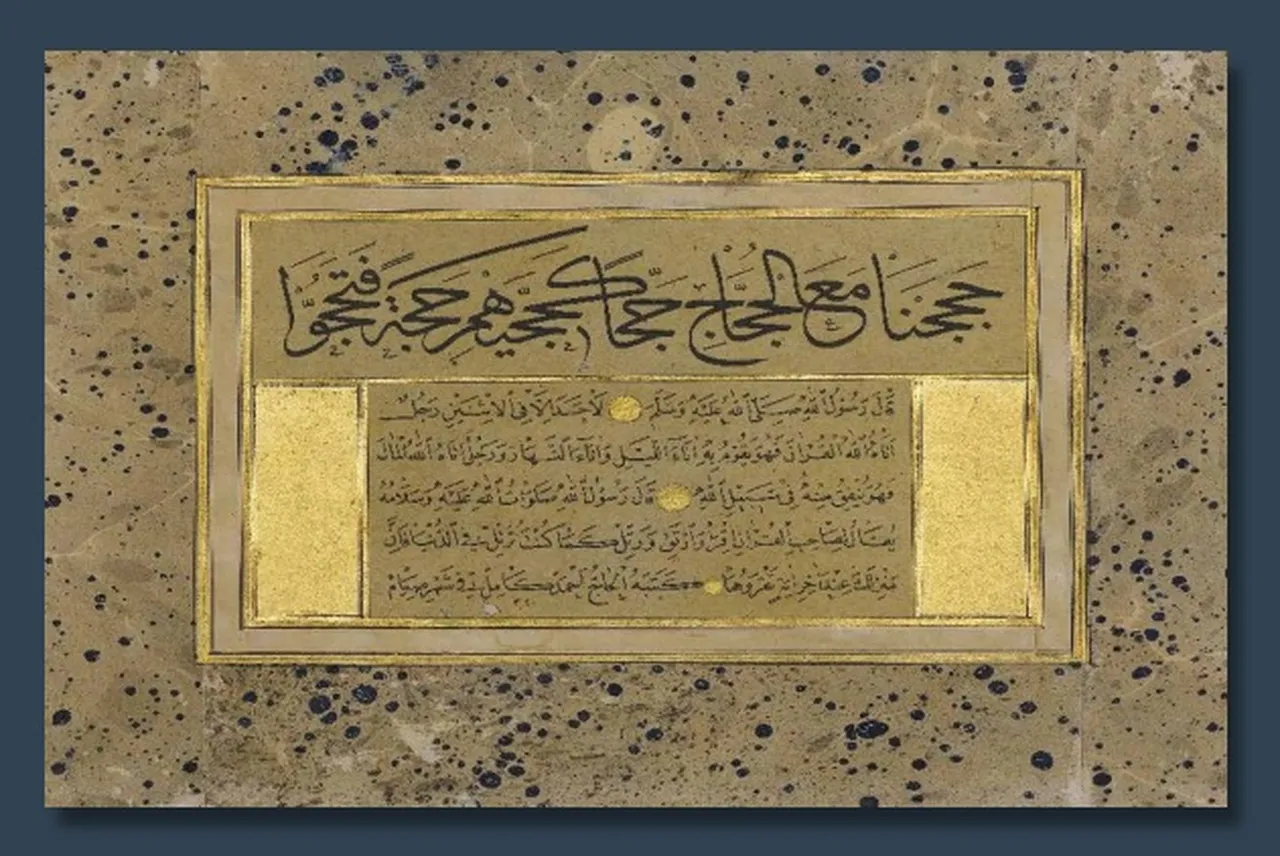 حججنا مع الحجاج حجا حجة
قال رسول الله صلى الله عليه وسلم لا حسد الا في الاثنين رجل
اتاه الله القران فهو يقوم به اناء الليل واناء النهار ورجل اتاه الله المال
فهو ينفق منه في سبيل الله قال رسول الله صلوات الله عليه وسلامه
يقال لصاحب القران اقرا وارتق ورتل كما كنت ترتل في الدنيا فان
منزلتك عند اخر اية تقروها كتبه الحاج احمد كامل في شهر صيام